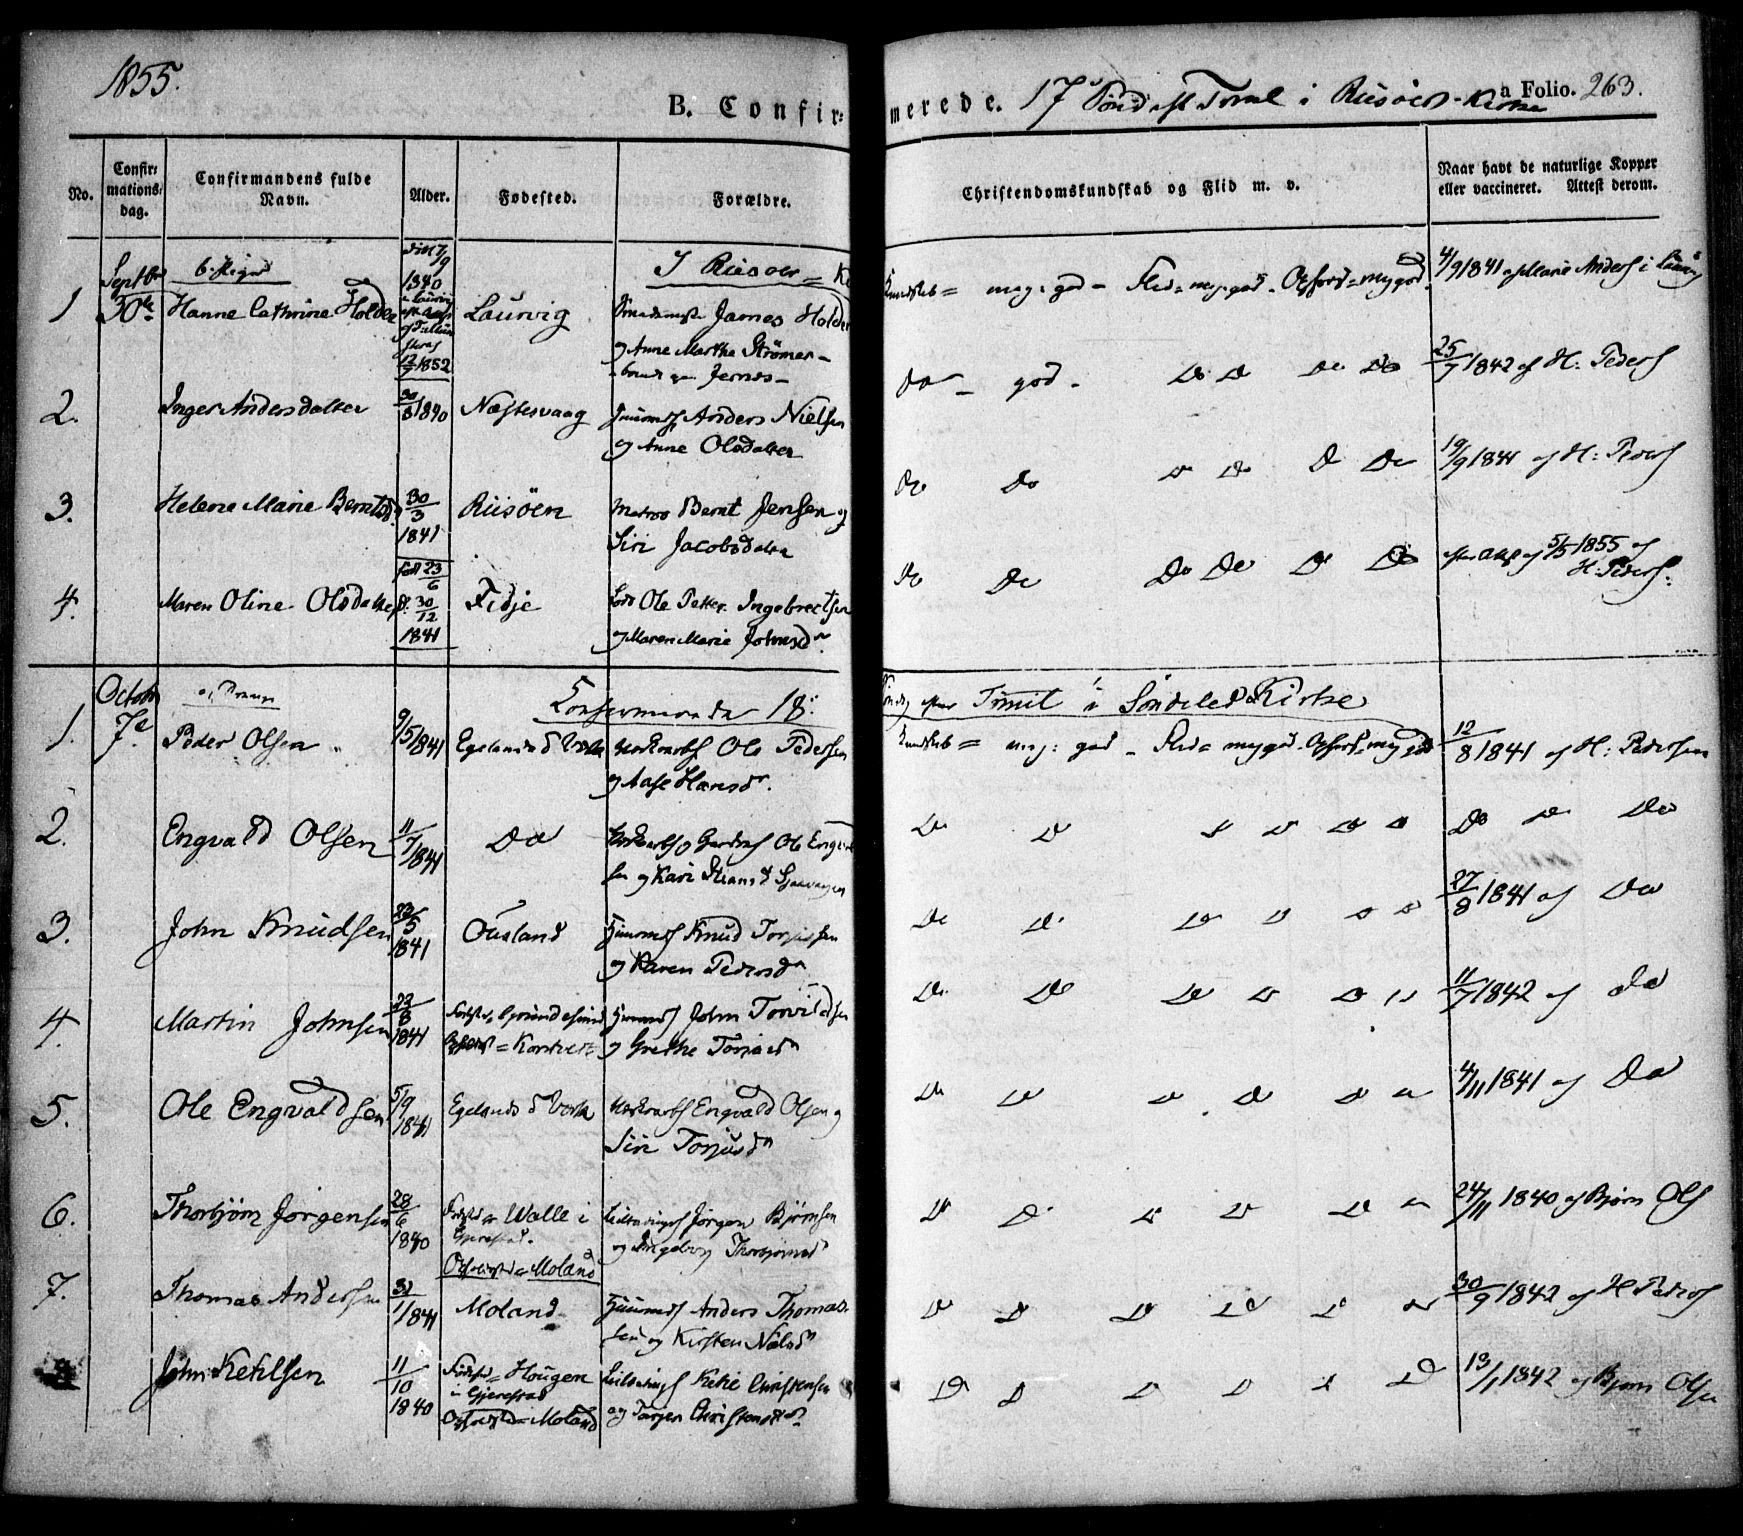 1855.
B. Confirmerede. 17 Sönd. eft. Trin. i Riisöers Kirke
a Folio. 263.
No.
Confirmations-dag.
Confirmandens fulde Navn.
Alder.
Fødested.
Forældre.
Christendomskundskab og Flid m. v.
Naar havt de naturlige Kopper eller vaccineret. Attest derom.
Septbr
b. Piger
I Riisoer
1
30te
Hanne Cathrine Holder
1840
12/7 1852
Laurvig
James Holder
og Anne Marthe Strömer
Kundskab = meg: god - Flid = meg. god - Opførs = meg god
4/9 1841 af Marie Anders i Laurvig
2.
Inger Andersdatter
30/8 1840
Næstesvaag
Huusm Anders Nielsen
og Anne Olsdatter
Do - god - Do Do Do Do
25/7 1842 af H: Peders
3.
Helene Marie Berntsd.
30/3 1841
Riisöen
Matros Bernt Jensen og
Siri Jacobsdatter
Do Do Do Do Do Do
19/9 1841 af H: Peders
4.
Maren Oline Olsdatter
født 23/6
d. 30/12 1841
Fidje
Lods Ole Petter Ingebrectsen
og Maren Marie Johnsd.
Do Do Do Do Do Do
efter Att. af 5/5 1855 af
H: Peders:
Octobr
a, Drenge
Confirmerede 18. Söndag efter Trinit. i Söndeleds Kirke
1.
7de
Peder Olsen
9/5 1841
Egelands Værk
Værksarb Ole Pedersen
og Aase Hansd.
Kundskab = meg: god - Flid = meg god - Opførs = meg god
12/8 1841 af H: Pedersen
2.
Engvald Olsen
11/7 1841
Do
Ole Engvald
sen og Kari
Do Do Do Do Do Do
Do Do Do
3.
John Knudsen
23/5 1841
Ousland
Huusm Knud Torjussen
og Karen Pedersd.
Do Do Do Do Do Do
27/8 1841 af Do
4.
Martin Johnsen
23/8 1841
Huusm John Torvildsen
og Grethe Torjusd.
Do Do Do Do Do
11/7 1842 af Do
5.
Ole Engvaldsen
5/9 1841
Egelands Værk
Værksarb Engvald Olsen og
Siri Torjusd.
Do Do Do Do Do
4/11 1841 af Do
6.
Thorbjörn Jörgensen
28/6 1840
Födested Walle i
Gjerestad.
Opholdsted = Moland
Leilending Jörgen Björnsen
og Ingeborg Thorbjörnsd.
Do Do Do Do Do
24/11 1840 af Björn Ols
7.
Thomas Andersen
1/1841
Moland
Huusm Anders Thomas-
sen og Kirsten Nielsd.
Do Do Do Do Do Do
30/9 1842 af H Peders
8
John Ketilsen
11/10 1840
Födested = Hougen
i Gjerestad
Opholdsted = Moland
Leilending Ketil Christensen
og Torjer Christensd.
Do Do Do Do Do Do
13/1 1842 af Björn Olsen